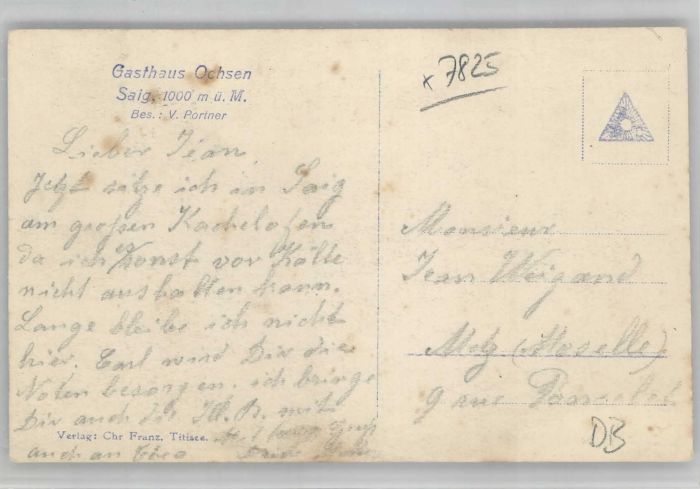 Gasthaus Ochsen
Saig, 1000 m ü. M.
Bes.: V. Portner
x 7825
Lieber Jean,
Jetzt sitze ich in Saig
am großen Kachelofen
da ich es sonst vor Kälte
nicht aushalten kann.
Lange bleibe ich nicht
hier. Carl wird Dir die
Noten besorgen. ich bringe
Dir auch die Ill. B. mit
auch an
Verlag: Chr Franz, Titisee.
Monsieur
Jean Weigand
Metz (Moselle)
9 rue
DB